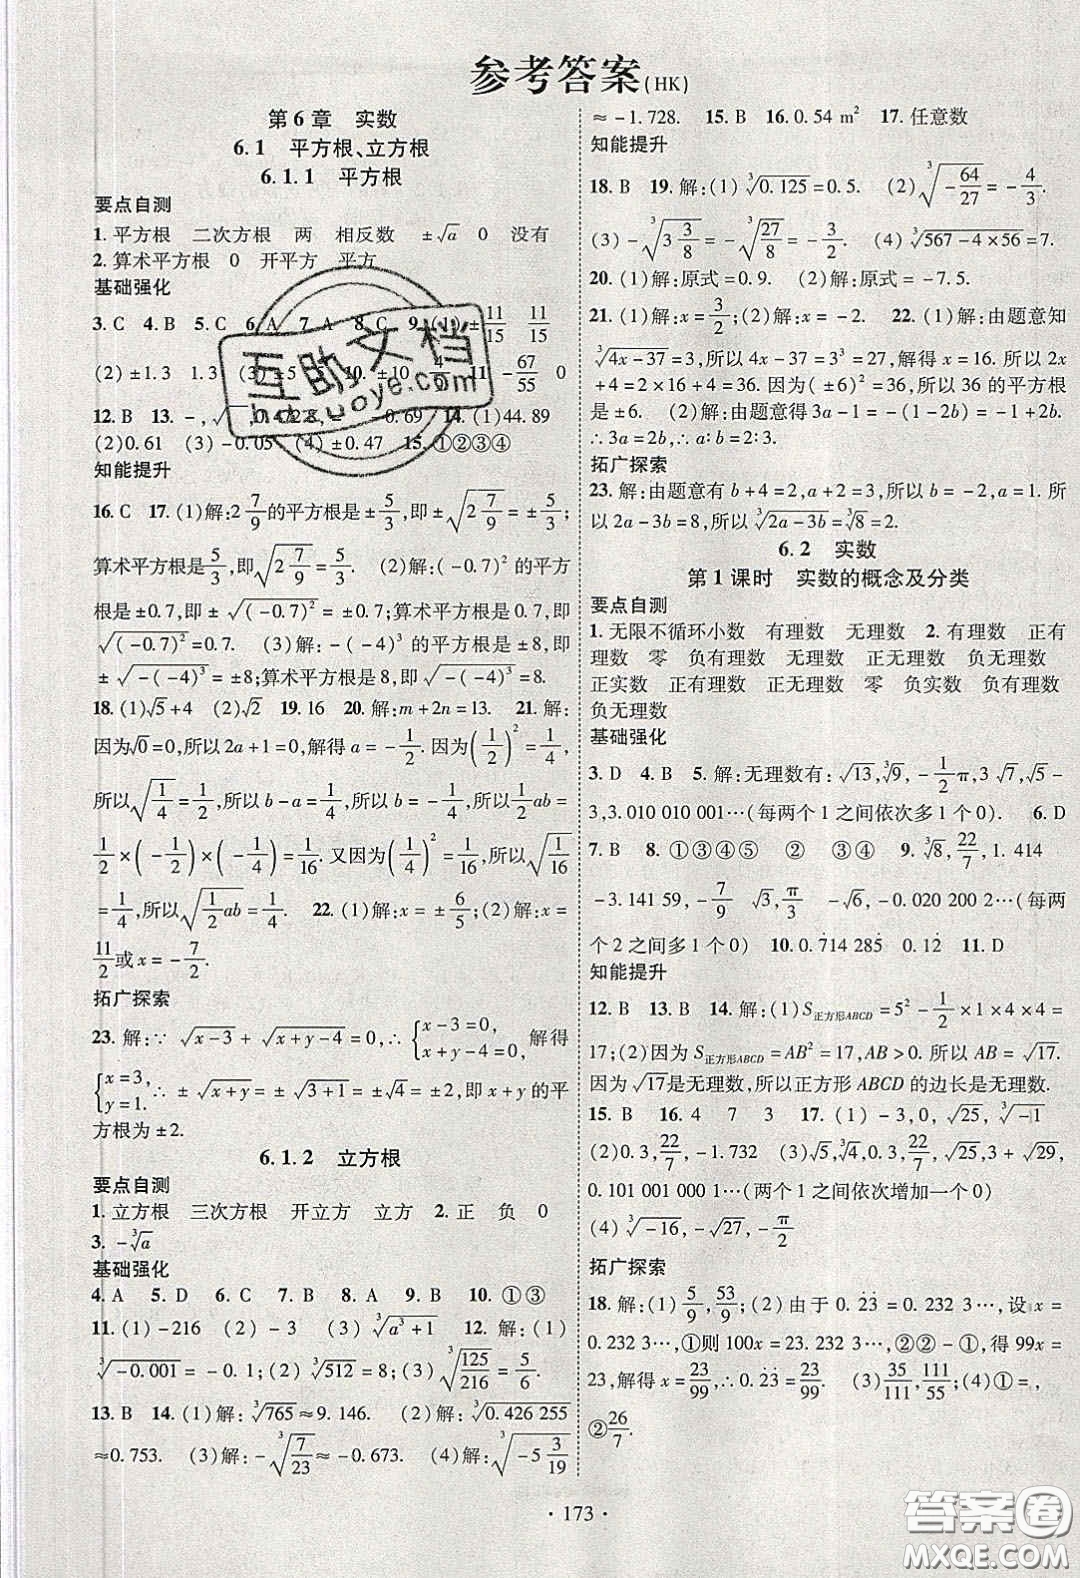 参考答案(HK)
第6章 实数
6.1 平方根、立方根
6.1.1 平方根
要点自测
1.平方根 二次方根 两 相反数 ±√a 0 没有
2.算术平方根 0 开平方 平方
基础强化
3.C 4.B 5.C 6.A 7.A 8.C 9.(1)±11/15 11/15
(2)±1.3 1.3 (3)±5 5 10.±10 11.-67/55 0
12.B 13. 14.(1)44.89
(2)0.61 (3)-0.05 (4)±0.47 15.①②③④
知能提升
16.C 17.(1)解:2 7/9的平方根是±5/3,即±√(2 7/9)=±5/3;
算术平方根是5/3,即√(2 7/9)=5/3. (2)解:(-0.7)²的平方
根是±0.7,即±√(-0.7)²=±0.7;算术平方根是0.7,即
√(-0.7)²=0.7. (3)解:-(-4)³的平方根是±8,即
±√-(-4)³=±8;算术平方根是8,即√-(-4)³=8.
18.(1)√5+4 (2)√2 19.16 20.解:m+2n=13. 21.解:
因为√0=0,所以2a+1=0,解得a=-1/2.因为(1/2)²=1/4,
所以√(1/4)=1/2,所以b-a=1/4,所以b=-1/4,所以1/2ab=
1/2×(-1/2)×(-1/4)=1/16.又因为(1/4)²=1/16,所以√(1/16)
=1/4,所以√(1/2ab)=1/4. 22.(1)解:x=±6/5;(2)解:x=
11/2或x=-7/2.
拓广探索
23.解:∵√(x-3)+√(x+y-4)=0,∴{x-3=0, x+y-4=0, 解得
{x=3, y=1. ±√(x+y)=±√(3+1)=±2,即x+y的平
方根为±2.
6.1.2 立方根
要点自测
1.立方根 三次方根 开立方 立方 2.正 负 0
3.-∛a
基础强化
4.A 5.D 6.C 7.B 8.A 9.B 10.①③
11.(1)-216 (2)-3 (3)∛(a³+1) 12.解:(1)
∛(-0.001)=-0.1;(2)∛512=8;(3)∛(125/216)=5/6.
13.B 14.(1)解:∛765≈9.146. (2)解:∛0.426 255
≈0.753. (3)解:-∛(7/23)≈-0.673. (4)解:∛(-5 3/19)
≈-1.728. 15.B 16.0.54 m² 17.任意数
知能提升
18.B 19.解:(1)∛0.125=0.5. (2)∛(-64/27)=-4/3.
(3)-∛(3 3/8)=-∛(27/8)=-3/2. (4)∛(567-4×56)=7.
20.(1)解:原式=0.9. (2)解:原式=-7.5.
21.(1)解:x=3/2;(2)解:x=-2. 22.(1)解:由题意知
∛(4x-37)=3,所以4x-37=3³=27,解得x=16.所以2x
+4=2×16+4=36.因为(±6)²=36,所以36的平方根
是±6. (2)解:由题意得3a-1=-(1-2b)=-1+2b.
∴3a=2b,∴a∶b=2∶3.
拓广探索
23.解:由题意有b+4=2,a+2=3,所以b=-2,a=1.所
以2a-3b=8,所以∛(2a-3b)=∛8=2.
6.2 实数
第1课时 实数的概念及分类
要点自测
1.无限不循环小数 有理数 无理数 2.有理数 正有
理数 零 负有理数 无理数 正无理数 负无理数
正实数 正有理数 正无理数 零 负实数 负有理数
负无理数
基础强化
3.D 4.B 5.解:无理数有:√13,∛9,-1/2π,3√7,√5-
3,3.010 010 001…(每两个1之间依次多1个0) 6.D
7.B 8.①③④⑤ ② ③④ 9.∛8,22/7,1.414
-3.141 59,-7/9 √3,π/3 -√6,-0.020 200 2…(每两
个2之间多1个0) 10.0.7̇14 285̇ 0.12̇ 11.D
知能提升
12.B 13.B 14.解:(1)S正方形ABCD=5²-1/2×1×4×4=
17;(2)因为S正方形ABCD=AB²=17,AB>0.所以AB=√17.
因为√17是无理数,所以正方形ABCD的边长是无理数.
15.B 16.4 7 3 17.(1)-3,0,√25,∛-1
(2)0.5,22/7,-1.732 (3)√5,∛4,0.13,-√24,+√29,
0.101 001 000 1…(两个1之间依次增加一个0)
(4)∛-16,-√27,-π/2
拓广探索
18.解:(1)5/9,53/9;(2)由于0.2̇3̇=0.232 3…,设x=
0.232 3…,①则100x=23.232 3…,②②-①,得99x=
23,解得x=23/99,∴0.2̇3̇=23/99. (3)35/111,111/55;(4)①=,
②26/7.
·173·
互助文档
答案圈
MXQE.COM